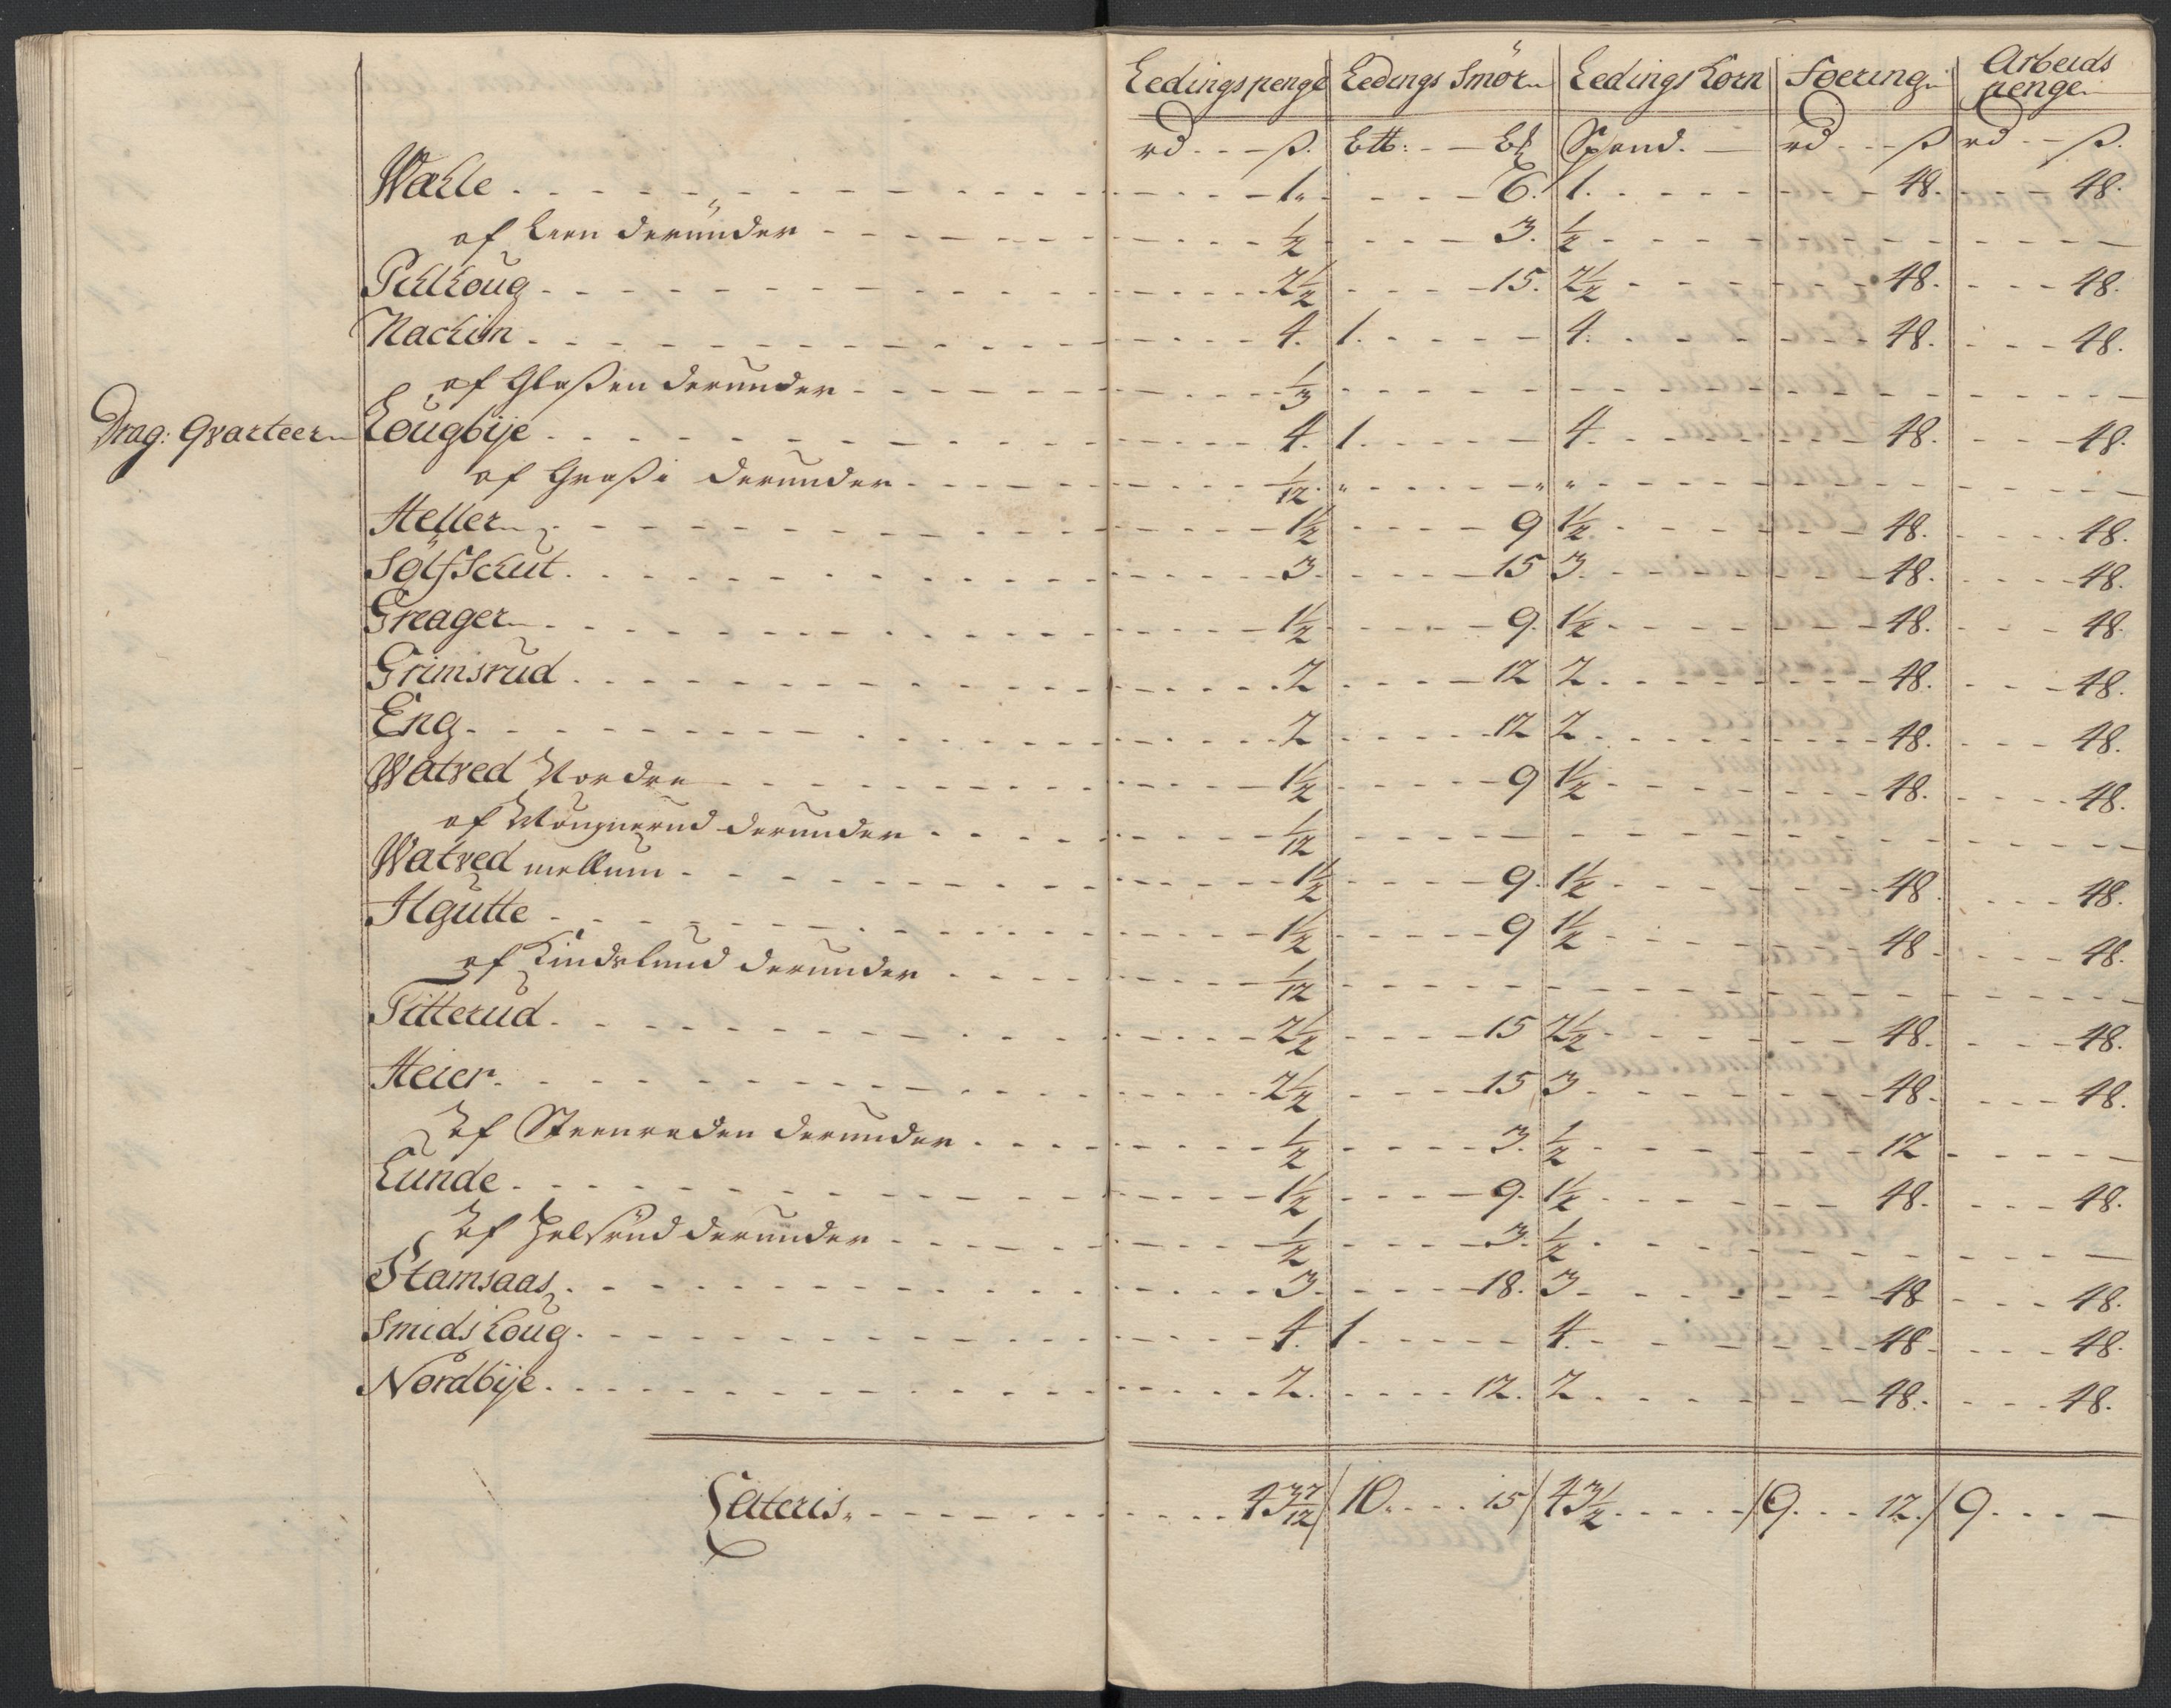 Ledingspenge Ledings Smör Ledings Korn Foering Arbeids penge
rd ß. Btt: Spand. rd ß rd ß.
Wahle 1. 6. 1. 48. 48.
af Leen derunder ½ 3. ½
2½ 15. 2½ 48. 48.
Nachim 4. 1. 4. 48. 48.
af Glaßen derunder ⅓
Drag: Qvarteer Lougbÿe 4. 1. 4. 48. 48.
af Graßi derunder 1/12. " " "
Heller 1½ 9 1½ 48. 48.
Sölfschut. 3. 15 3. 48. 48.
Greager 1½ 9. 1½ 48. 48.
Grimsrud 2 12 2 48. 48.
Eng 2 12 2 48. 48.
Watved Nordre 1½ 9 1½ 48. 48.
af derunder 1/12
Watved mellum 1½ 9. 1½ 48. 48.
Ilgutte 1½ 9 1½ 48 48.
af Kindslund derunder 1/12
Titterud 2½ 15 2½ 48. 48.
Heier. 2½ 15 3 48. 48.
Af Steenreden derunder ½ 3. ½ 12
Lunde 1½ 9. 1½ 48. 48.
Af Helsrud derunder ½ 3. ½
Stamsaas 3. 18. 3 48 48.
Smidskoug 4. 1 4. 48 48.
Nordbÿe 2. 12. 2 48. 48.
Lateris. 43 7/12 / 10. 15 / 43½ / 9. 12. / 9.